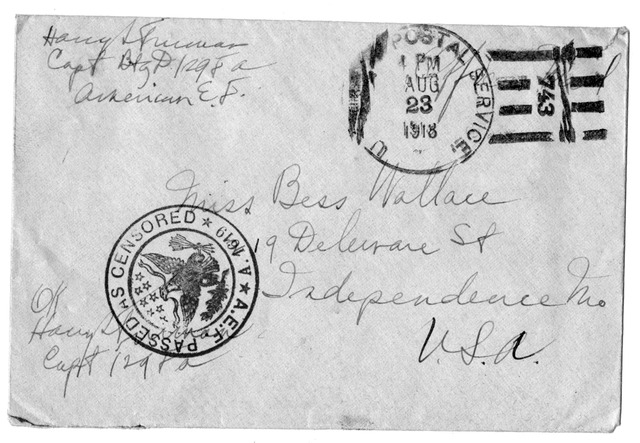 Harry S Truman
Capt Bty D 129 F a
American E. F.
POSTAL SERVICE
4 PM
AUG
23
1918
U
743
Miss Bess Wallace
19 Delaware St
Independence Mo
U.S.A.
A.E.F. PASSED AS CENSORED ★ A.1619 ★
OK
Harry S Truman
Capt 129 F a